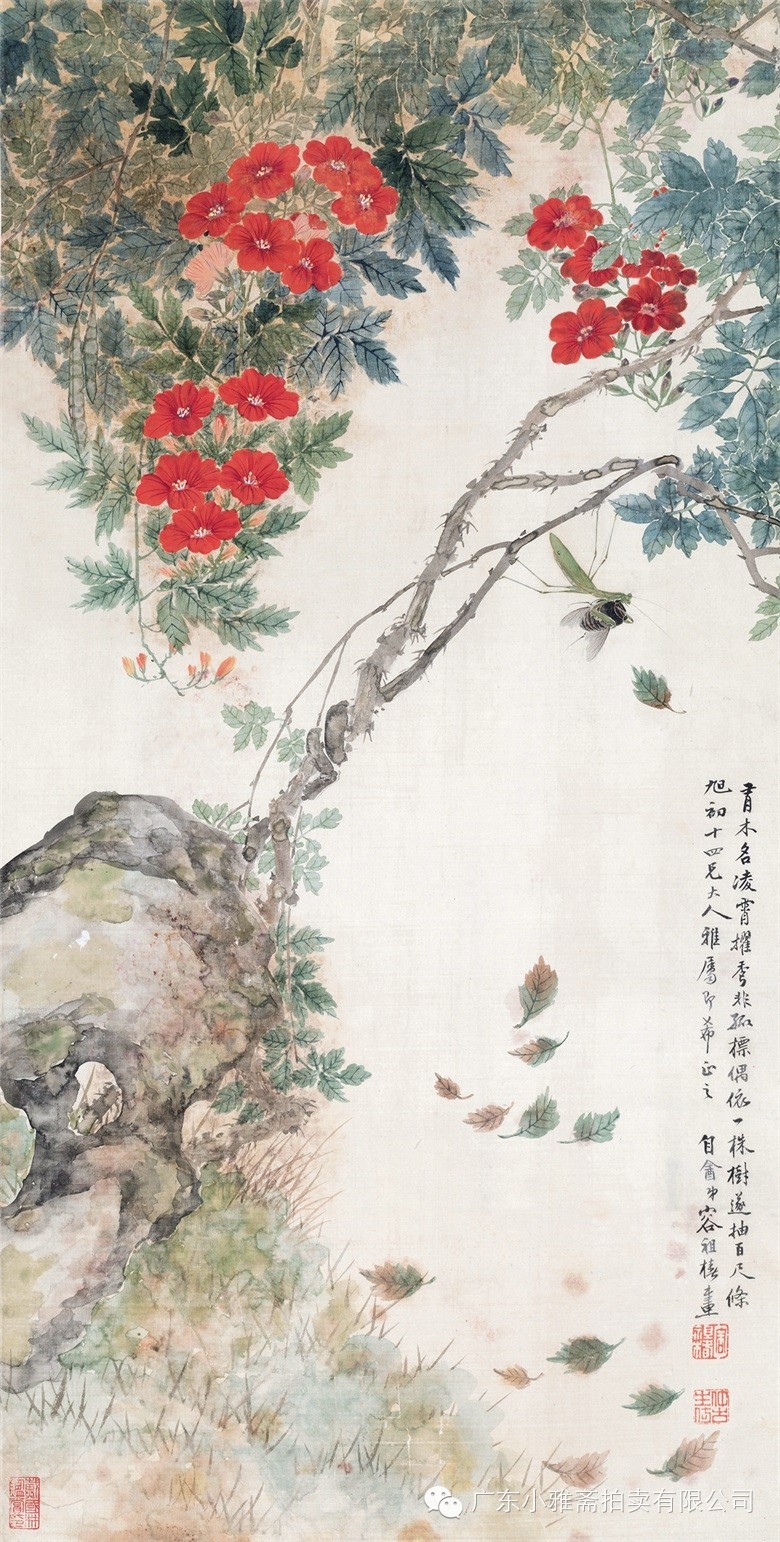 有木名凌霄擢秀非孤標偶依一株樹遂抽百尺條
旭初十四兄大人雅屬即希正之 自盦弟容祖椿畫
广东小雅斋拍卖有限公司